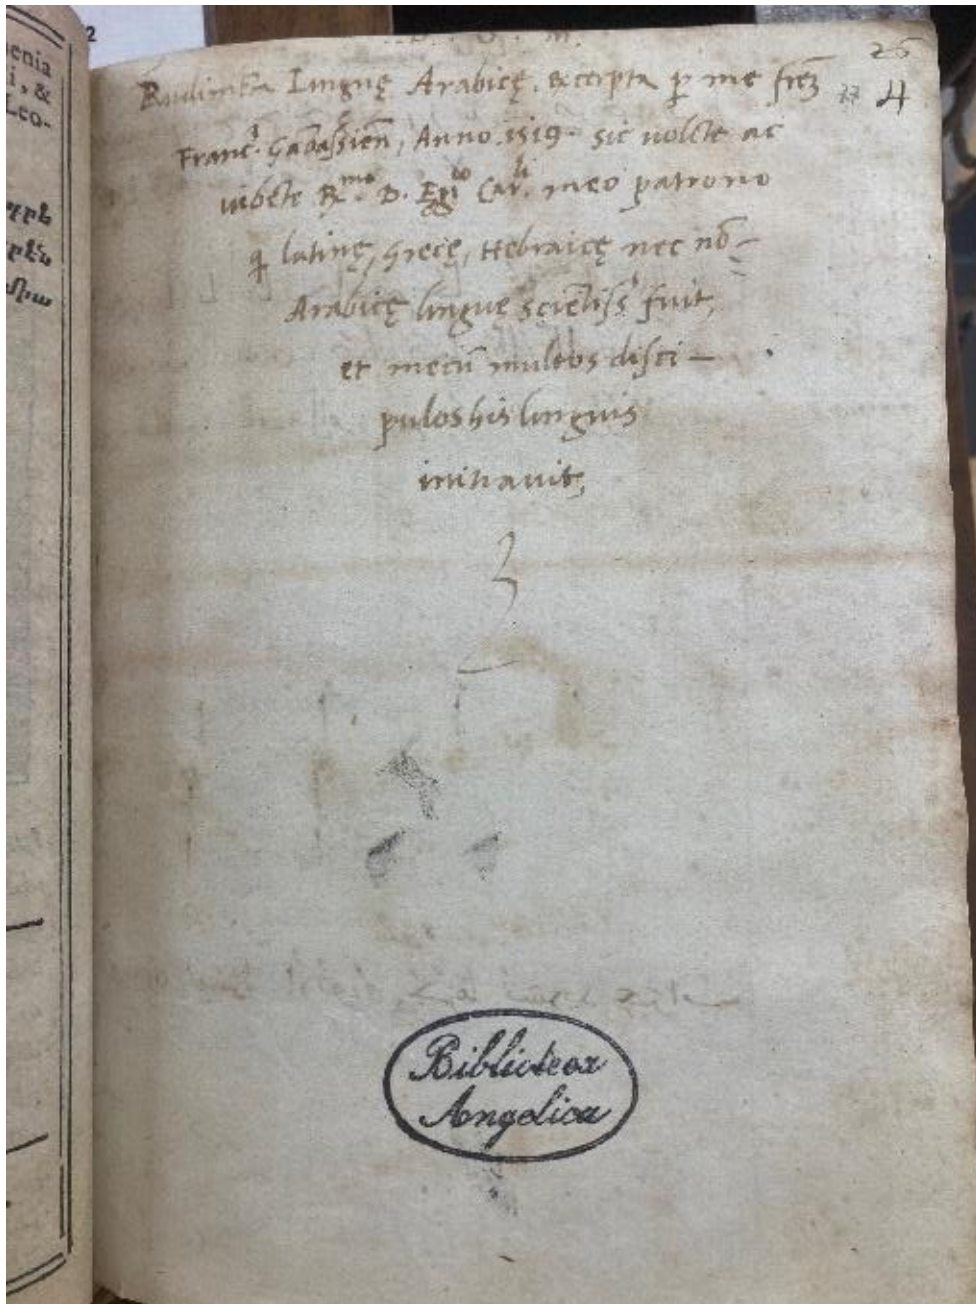 enia
i, &
Leo-
2
D. O. M.
26
Rudimẽta Linguę Arabicę, excerpta ꝑ me frẽȝ 77 4
Franc. Anno. 1519. sic volẽte ac
iubẽte R.mo D. Egi.o Car.li meo patrono
q latinę, Grecę, Hebraicę nec nõ-
Arabicę linguę sciẽtiss. fuit,
et mecũ multos disci-
pulos his linguis
initiavit,
Biblioteca
Angelica